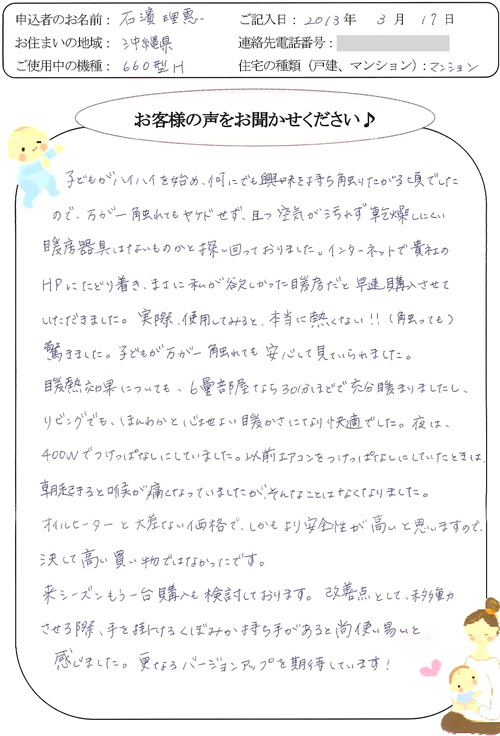 申込者のお名前：石濱 理恵 ご記入日：2013年 3月 17日
お住まいの地域：沖縄県 連絡先電話番号：
ご使用中の機種：660型H 住宅の種類（戸建、マンション）：マンション
お客様の声をお聞かせください♪
子どもがハイハイを始め、何にでも興味を持ち触りたがる頃でした
ので、万が一触れてもヤケドせず、且つ空気が汚れず乾燥しにくい
暖房器具はないものかと探し回っておりました。インターネットで貴社の
HPにたどり着き、まさに私が欲しかった暖房だと早速購入させて
いただきました。実際、使用してみると、本当に熱くない!!（触っても）
驚きました。子どもが万が一触れても安心して見ていられました。
暖熱効果についても、6畳部屋なら30分ほどで充分暖まりましたし、
リビングでも、ほんわかと心地よい暖かさになり快適でした。夜は、
400Wでつけっぱなしにしていました。以前エアコンをつけっぱなしにしていたときは、
朝起きると喉が痛くなっていましたが、そんなことはなくなりました。
オイルヒーターと大差ない価格で、しかもより安全性が高いと思いますので、
決して高い買い物ではなかったです。
来シーズンもう一台購入も検討しております。改善点として、移動
させる際、手を掛けるくぼみか持ち手があると尚使い易いと
感じました。更なるバージョンアップを期待しています！